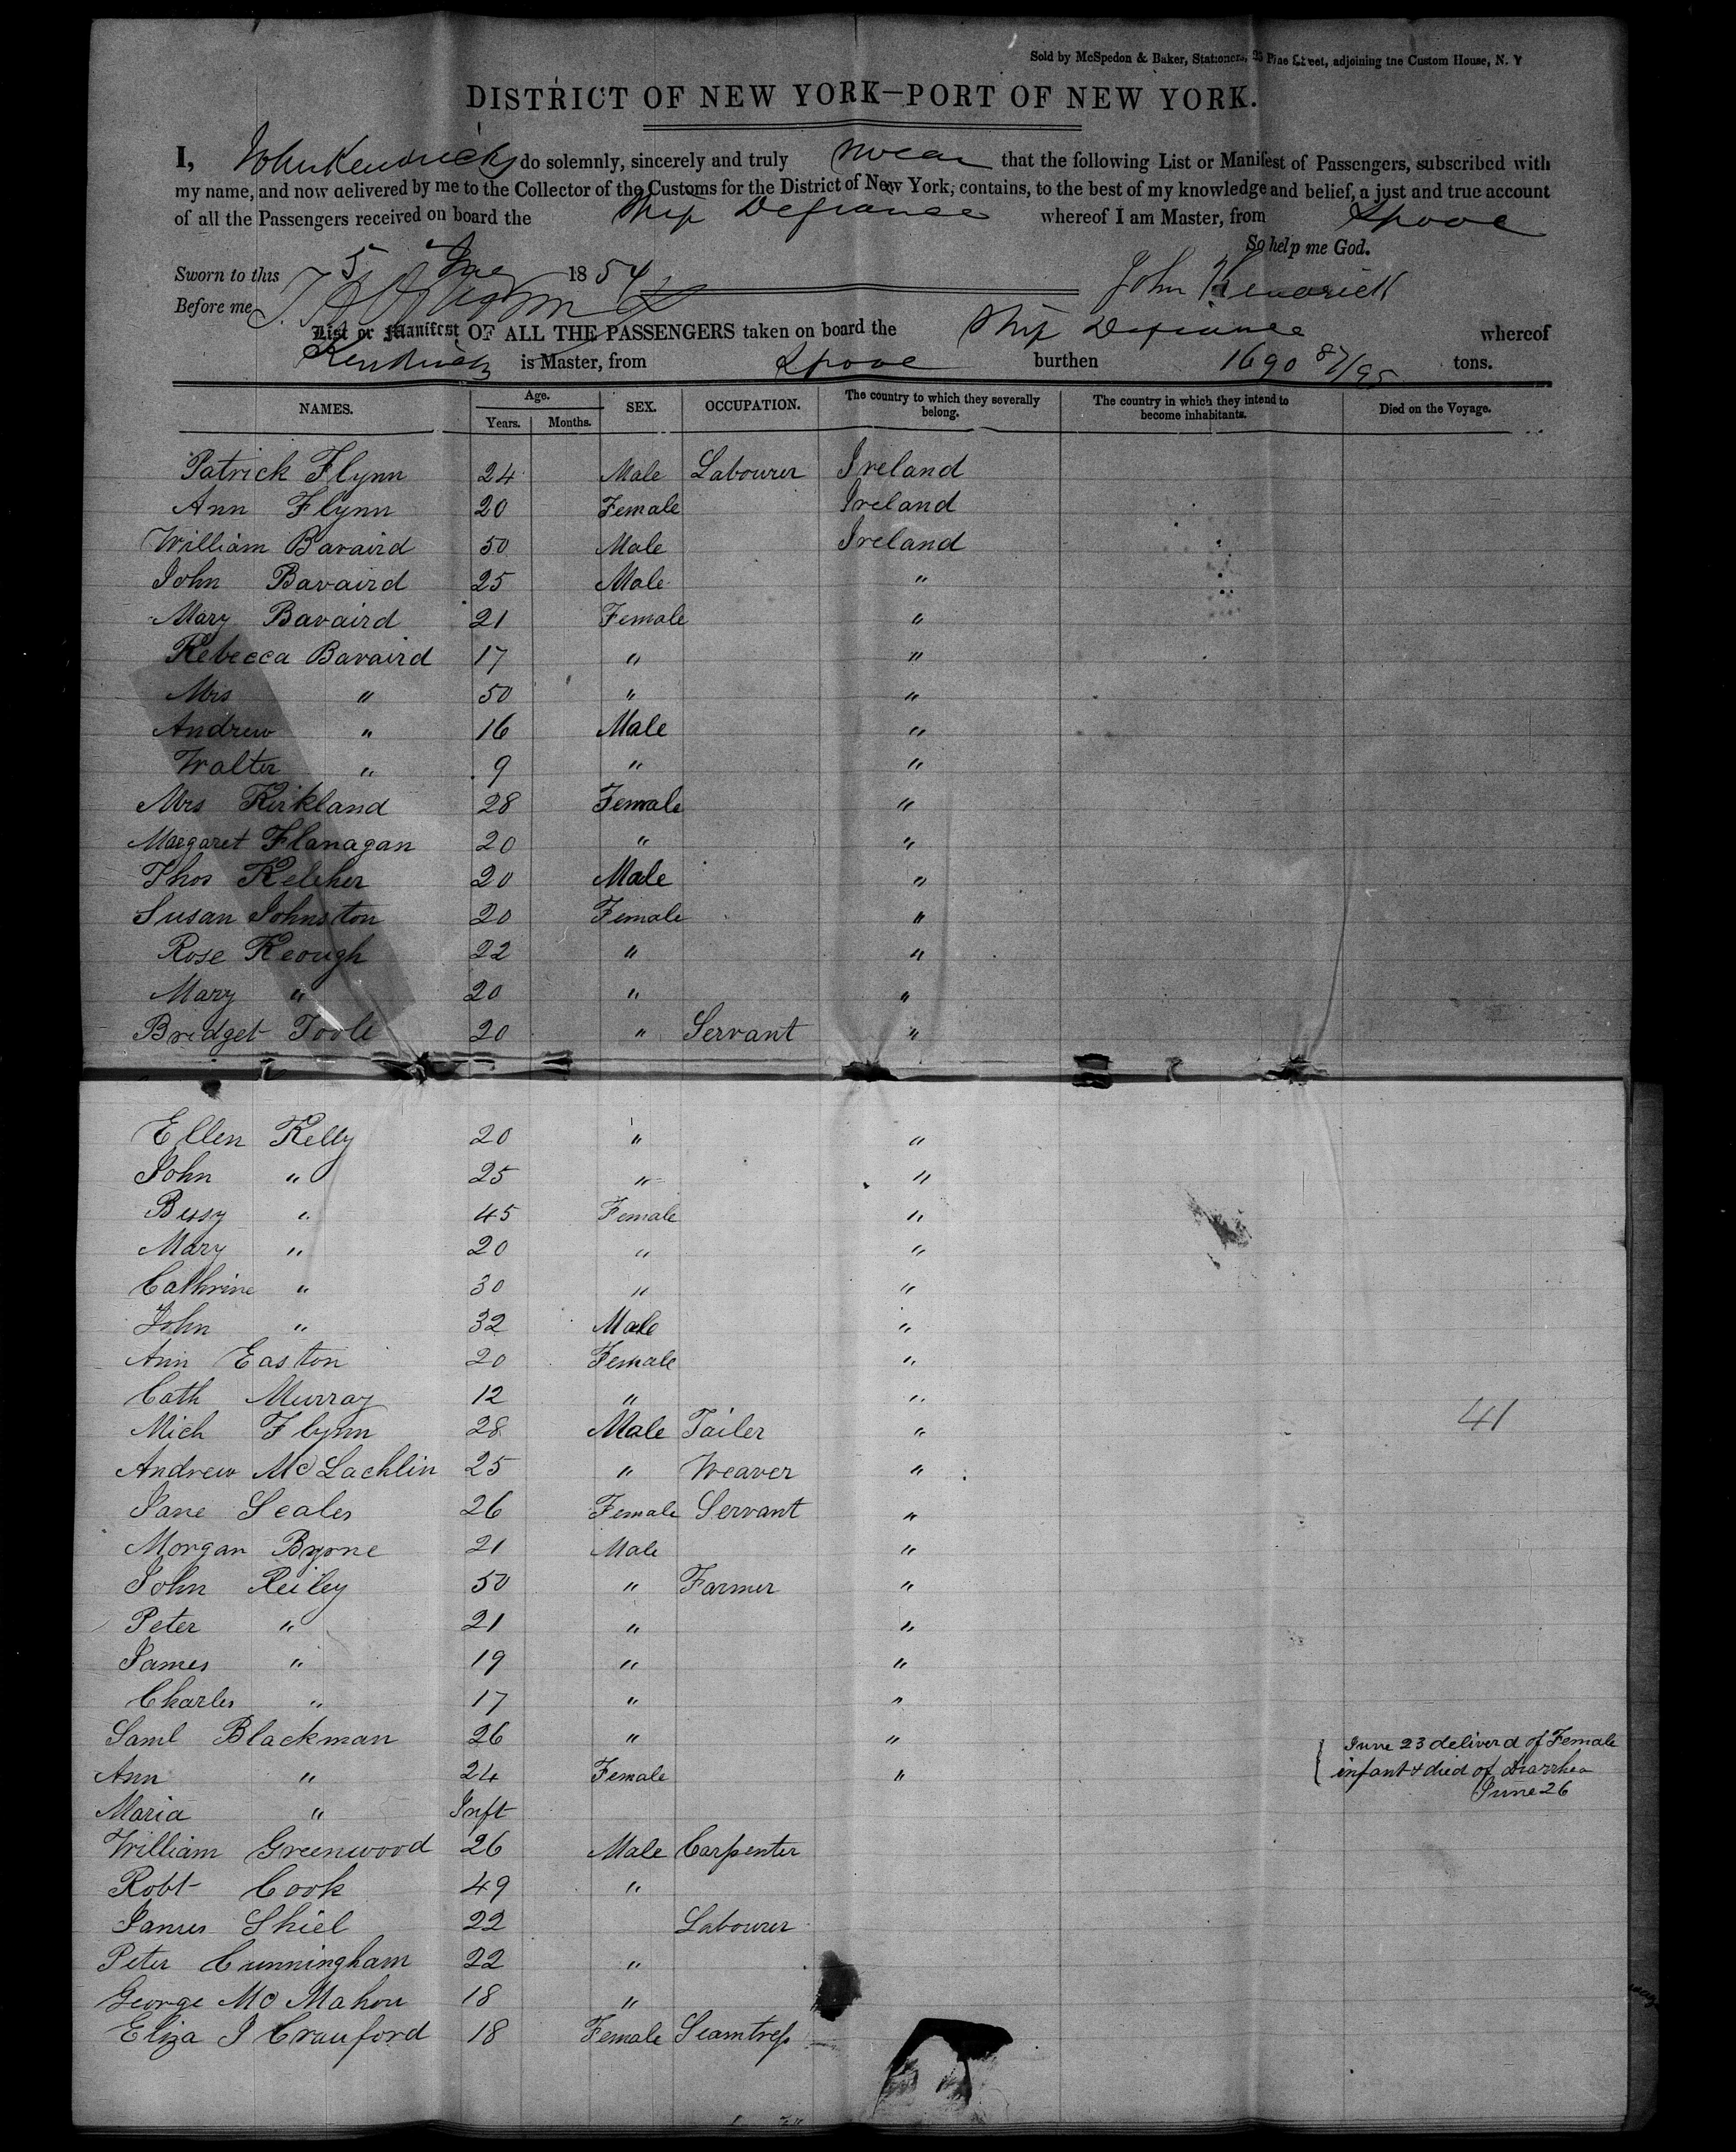 Sold by McSpedon & Baker, Stationers, 25 Pine Street, adjoining the Custom House, N. Y
DISTRICT OF NEW YORK—PORT OF NEW YORK.
I, John Kendrick do solemnly, sincerely and truly swear that the following List or Manifest of Passengers, subscribed with
my name, and now delivered by me to the Collector of the Customs for the District of New York, contains, to the best of my knowledge and belief, a just and true account
of all the Passengers received on board the Ship Defiance whereof I am Master, from Lpool
So help me God.
Sworn to this 5 1854 John Kendrick
Before me
List or Manifest OF ALL THE PASSENGERS taken on board the Ship Defiance whereof
Kendrick is Master, from Lpool burthen 1690 87/95 tons.
NAMES. Age. Years. Months. SEX. OCCUPATION. The country to which they severally belong. The country in which they intend to become inhabitants. Died on the Voyage.
Patrick Flynn 24 Male Labourer Ireland
Ann Flynn 20 Female Ireland
William Bavaird 50 Male Ireland
John Bavaird 25 Male "
Mary Bavaird 21 Female "
Rebecca Bavaird 17 " "
Mrs " 50 " "
Andrew " 16 Male "
Walter " 9 " "
Mrs Kirkland 28 Female "
Margaret Flanagan 20 " "
Thos Keleher 20 Male "
Susan Johnston 20 Female "
Rose Keough 22 " "
Mary " 20 " "
Bridget Toole 20 " Servant "
Ellen Kelly 20 " "
John " 25 " "
Bessy " 45 Female "
Mary " 20 " "
Cathrine " 30 " "
John " 32 Male "
Ann Easton 20 Female "
Cath Murray 12 " "
Mich Flynn 28 Male Tailer " 41
Andrew McLachlin 25 " Weaver "
Jane Scales 26 Female Servant "
Morgan Byrne 21 Male "
John Reiley 50 " Farmer "
Peter " 21 " "
James " 19 " "
Charles " 17 " "
Saml Blackman 26 " "
June 23 deliverd of Female
Ann " 24 Female " infant & died of Diarrhea
June 26
Maria " Inft
William Greenwood 26 Male Carpenter
Robt Cook 49 "
James Shiel 22 Labourer
Peter Cunningham 22 "
George McMahon 18 "
Eliza J Crauford 18 Female Seamtress